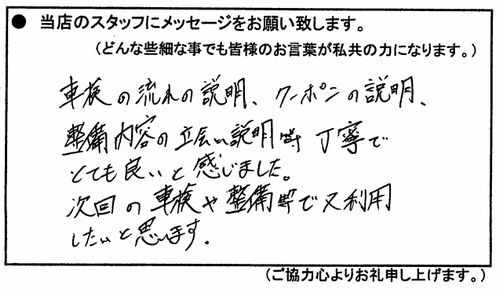 ● 当店のスタッフにメッセージをお願い致します。
(どんな些細な事でも皆様のお言葉が私共の力になります。)
車検の流れの説明、クーポンの説明、
整備内容の立会い説明等 丁寧で
とても良いと感じました。
次回の車検や整備等で又利用
したいと思います。
(ご協力心よりお礼申し上げます。)